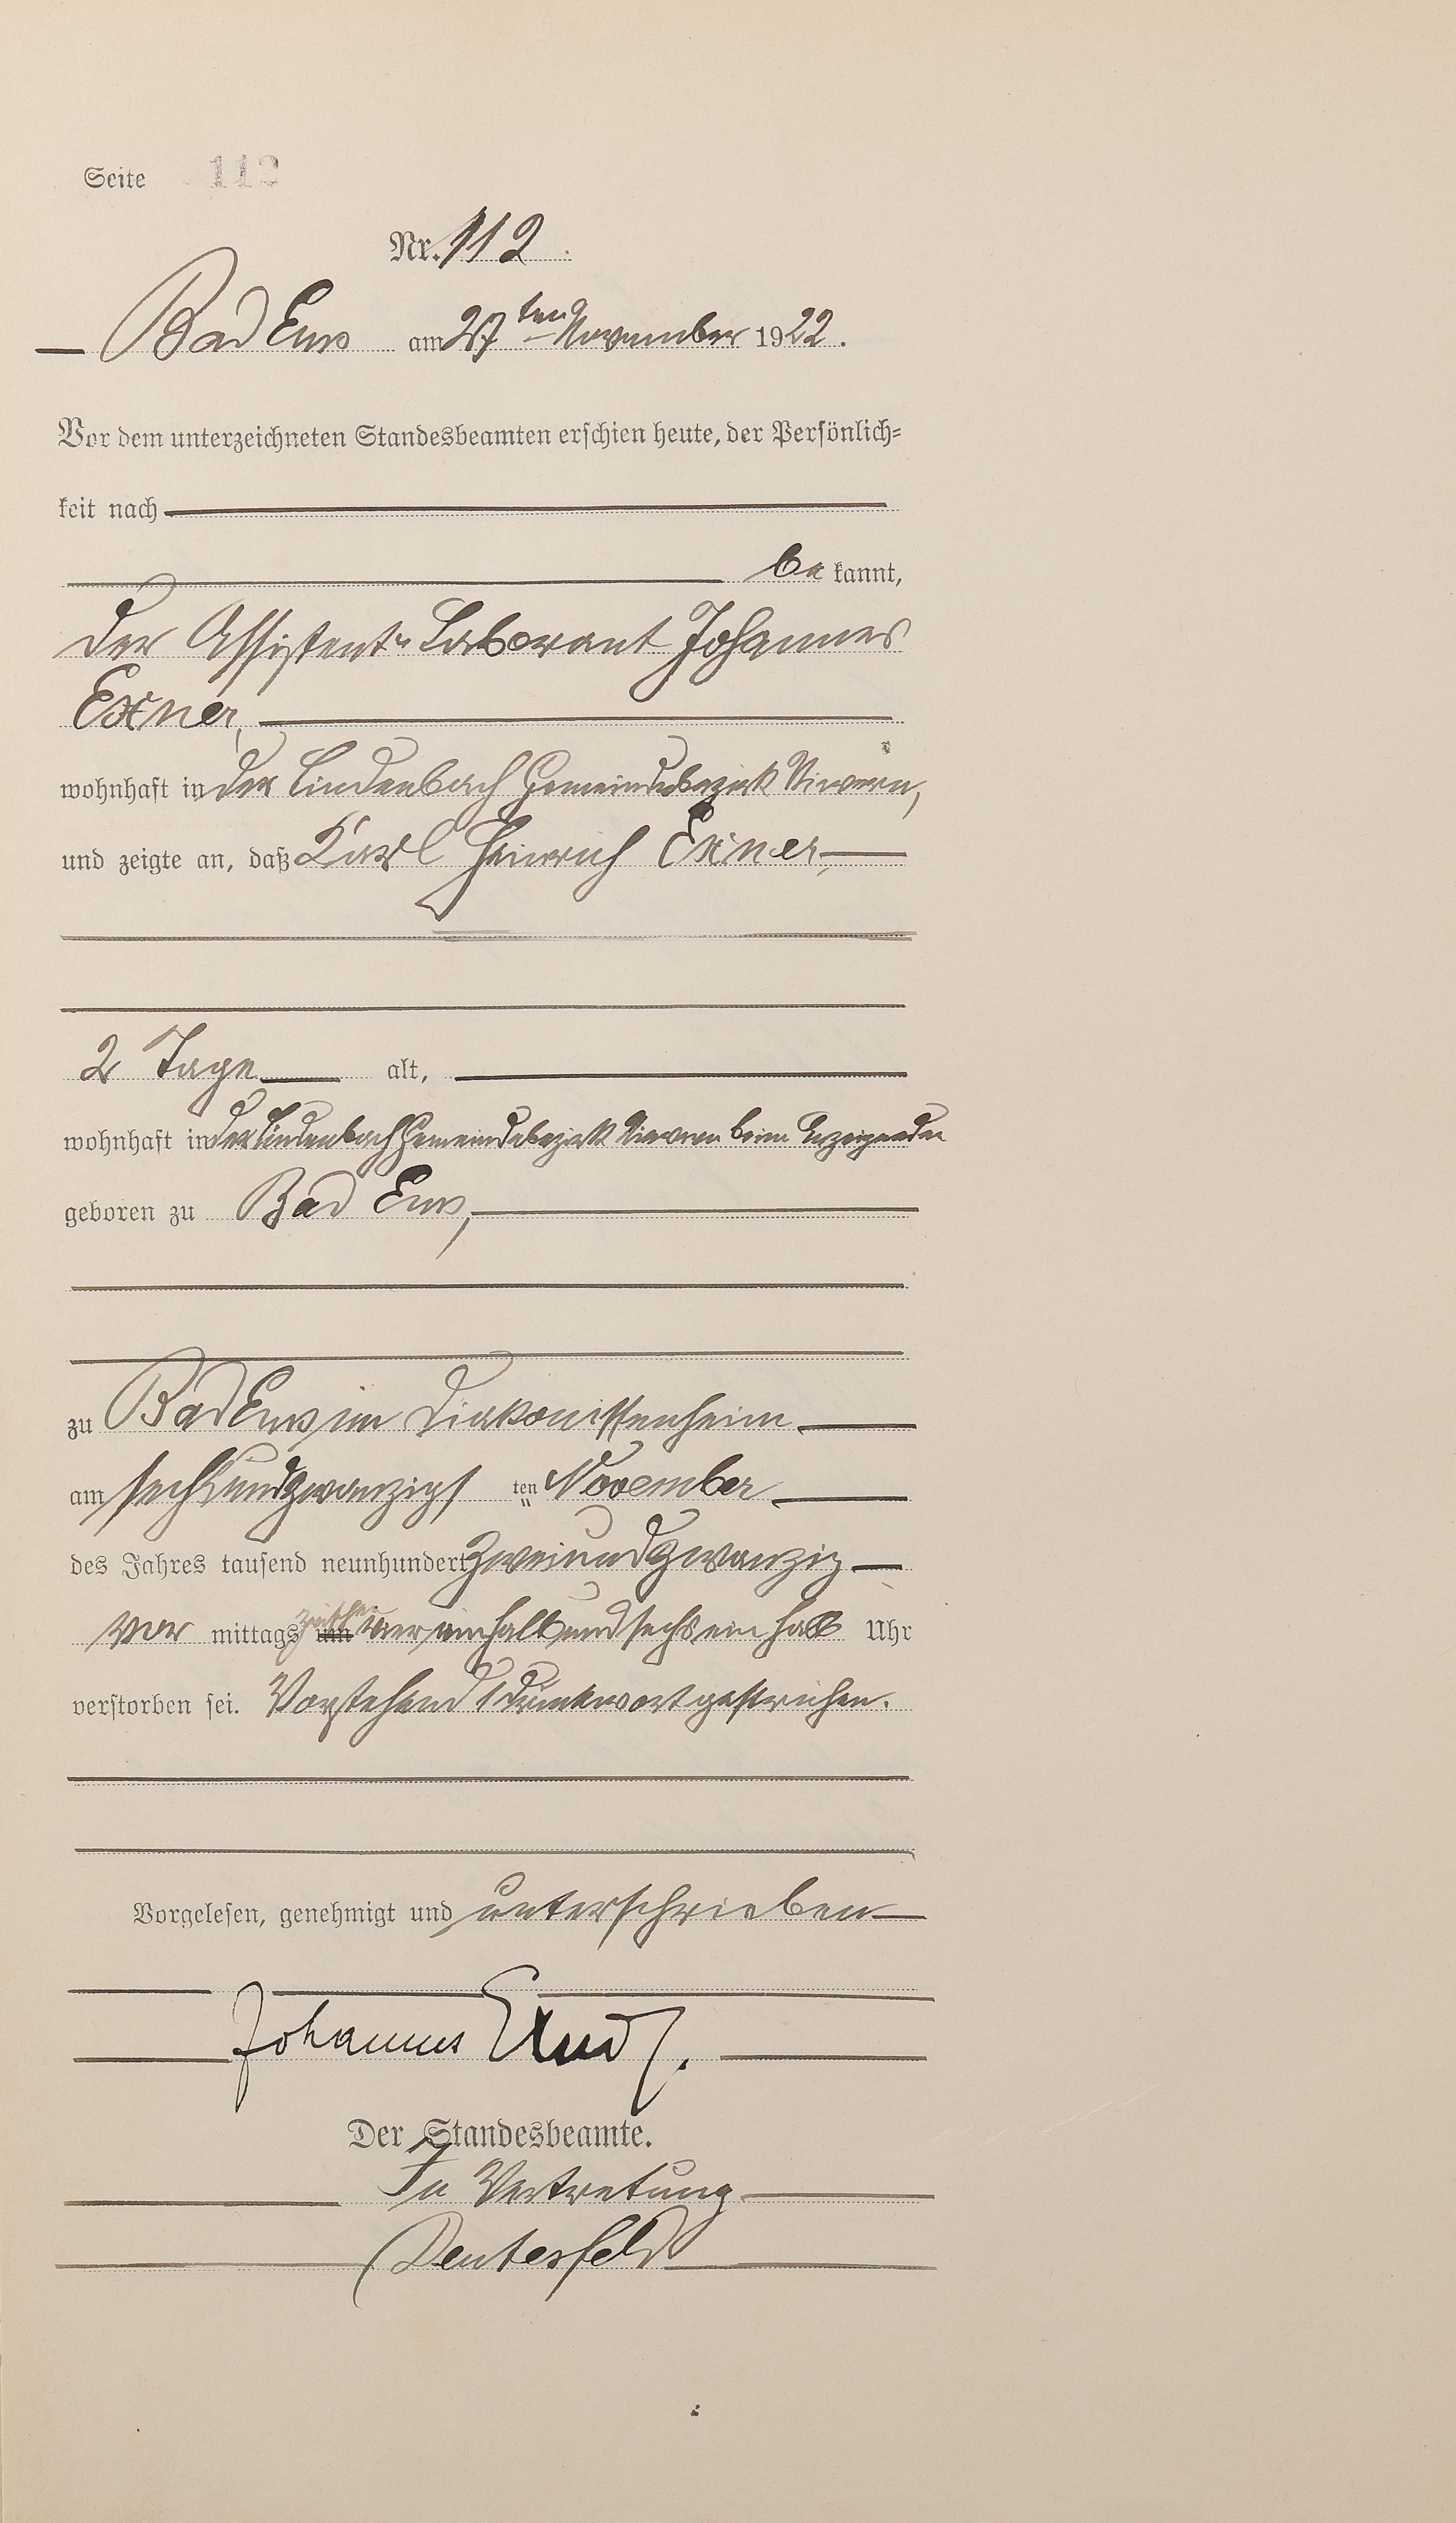 Seite 112
Nr. 112
Bad Ems am 27ten November 1922.
Vor dem unterzeichneten Standesbeamten erschien heute, der Persönlich-
keit nach
be kannt,
der Assistent-Laborant Johannes
Exner,
wohnhaft in der Lindenbach Gemeindebezirk Nievern,
und zeigte an, daß Karl Heinrich Exner,
2 Tage alt,
wohnhaft in der Lindenbach Gemeindebezirk Nievern beim Anzeigenden
geboren zu Bad Ems,
zu Bad Ems im Diakonissenheim
am sechsundzwanzigs ten November
des Jahres tausend neunhundert zweiundzwanzig
vor mittags um zwischen vier einhalb und sechs ein halb Uhr
verstorben sei. Vorstehend 1 Druckwort gestrichen.
Vorgelesen, genehmigt und unterschrieben
Johannes Exner.
Der Standesbeamte.
In Vertretung